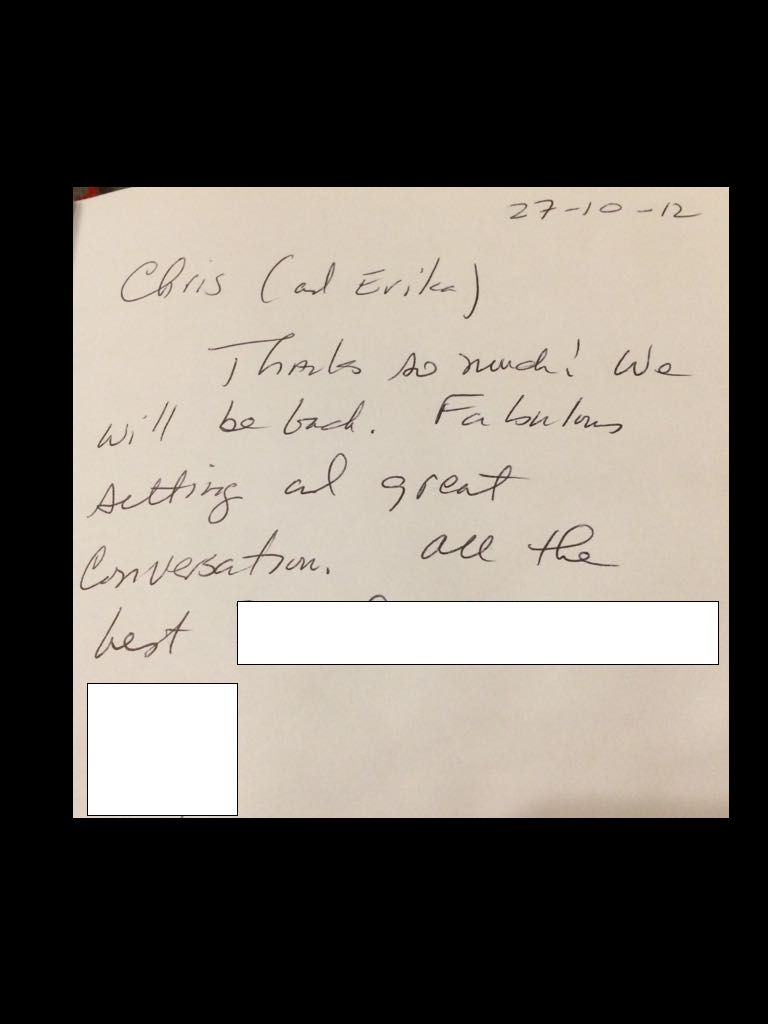 27-10-12
Chris (and Erika)
Thanks so much! We
will be back. Fabulous
setting and great
Conversation. All the
best